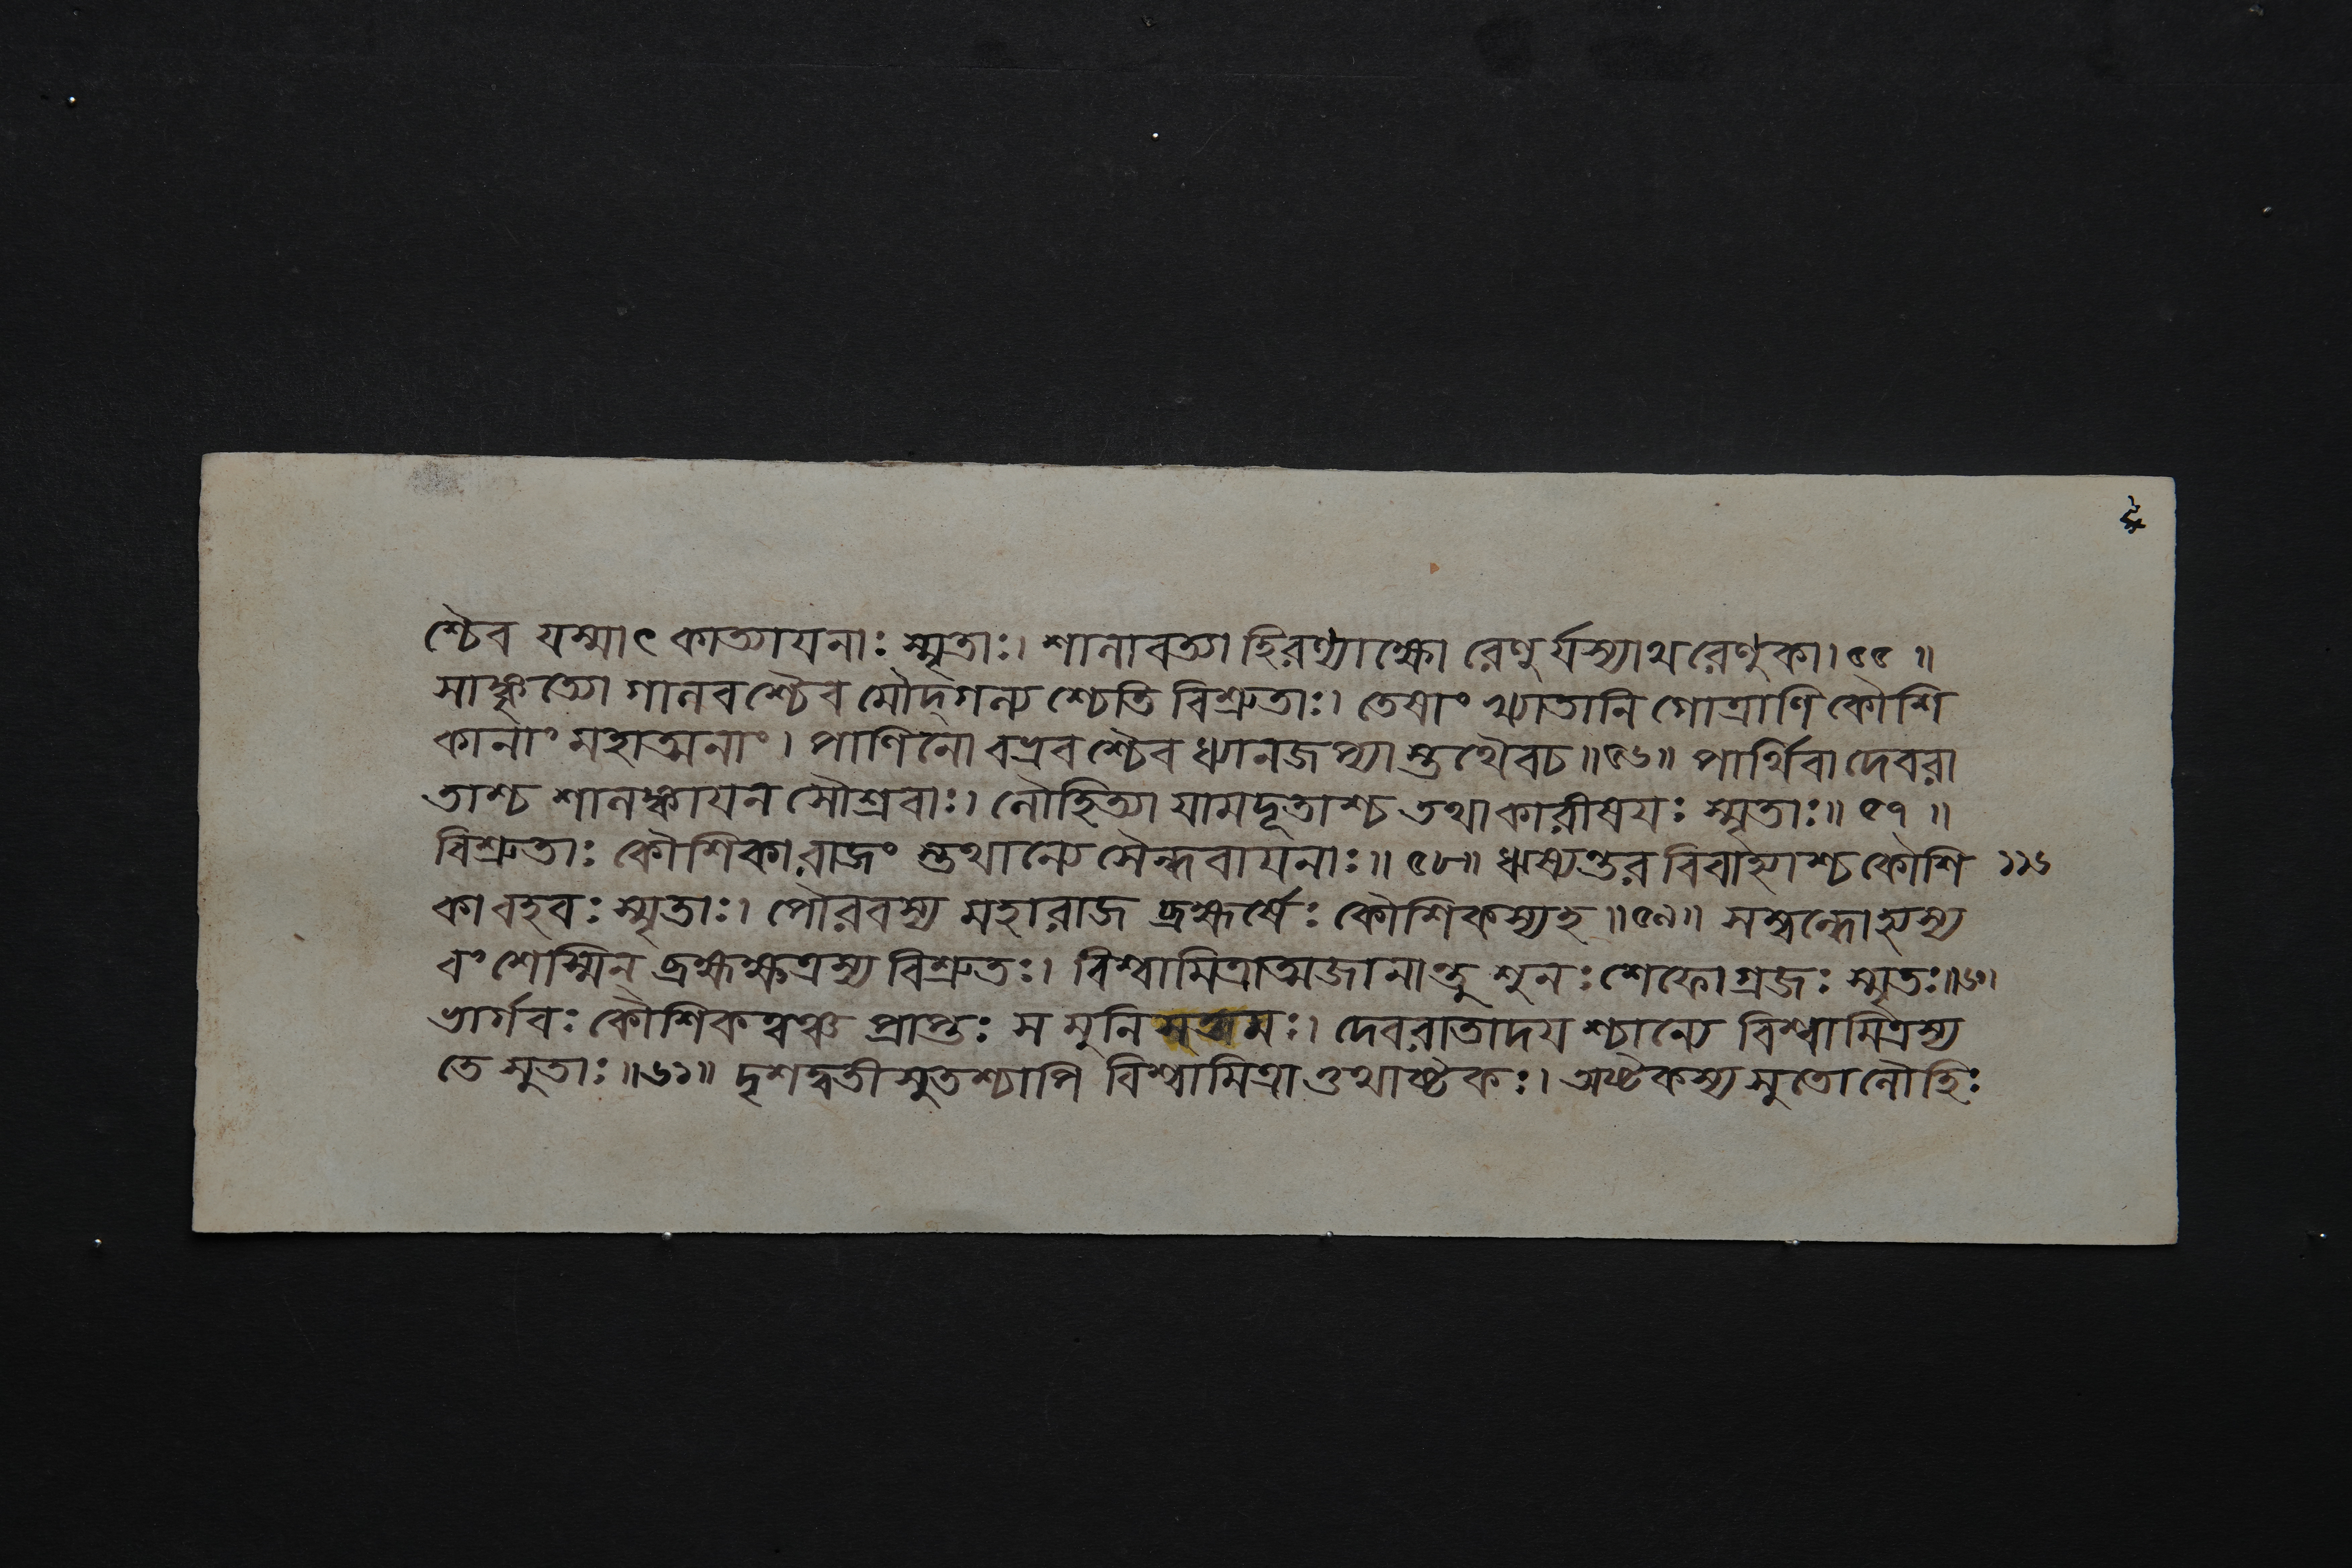 শ্চৈব যস্মাৎ কাত্যাযনাঃ স্মৃতাঃ। শালাবত্যা হিরণ্যাক্ষো রেণুর্যস্যাথ রেণুকা। ৫৫ ॥
সাঙ্কৃত্যো গালবশ্চৈব মৌদ্গল্যশ্চেতি বিশ্রুতাঃ। তেষাং খ্যাতানি গোত্রাণি কৌশি
কানাং মহাত্মনাং। পাণিনো বভ্রবশ্চৈব ধ্যানজপ্যাস্তথৈবচ॥৫৬॥ পার্থিবা দেবরা
তাশ্চ শালঙ্কাযন সৌশ্রবাঃ। লৌহিত্যা যামদূতাশ্চ তথাকারীষযঃ স্মৃতাঃ॥ ৫৭ ॥
বিশ্রুতাঃ কৌশিকা রাজং স্তথান্যে সৈন্ধবাযনাঃ॥ ৫৮॥ ঋষ্যন্তর বিবাহ্যাশ্চ কৌশি ১১৬
কা বহবঃ স্মৃতাঃ। পৌরবস্য মহারাজ ব্রহ্মর্ষেঃ কৌশিকস্যহ॥৫৯॥ সম্বন্ধোহ্যস্য
বংশেস্মিন্ ব্রহ্মক্ষত্রস্য বিশ্রুতঃ। বিশ্বামিত্রাত্মজানান্তু শুনঃশেফোগ্রজঃ স্মৃতঃ॥৬০।
ভার্গবঃ কৌশিকত্বঞ্চ প্রাপ্তঃ স মুনিসত্তমঃ। দেবরাতাদয শ্চান্যে বিশ্বামিত্রস্য
তে সুতাঃ॥৬১॥ দৃশদ্বতী সুতশ্চাপি বিশ্বামিত্রা ত্তথাষ্টকঃ। অষ্টকস্য সুতো লৌহিঃ